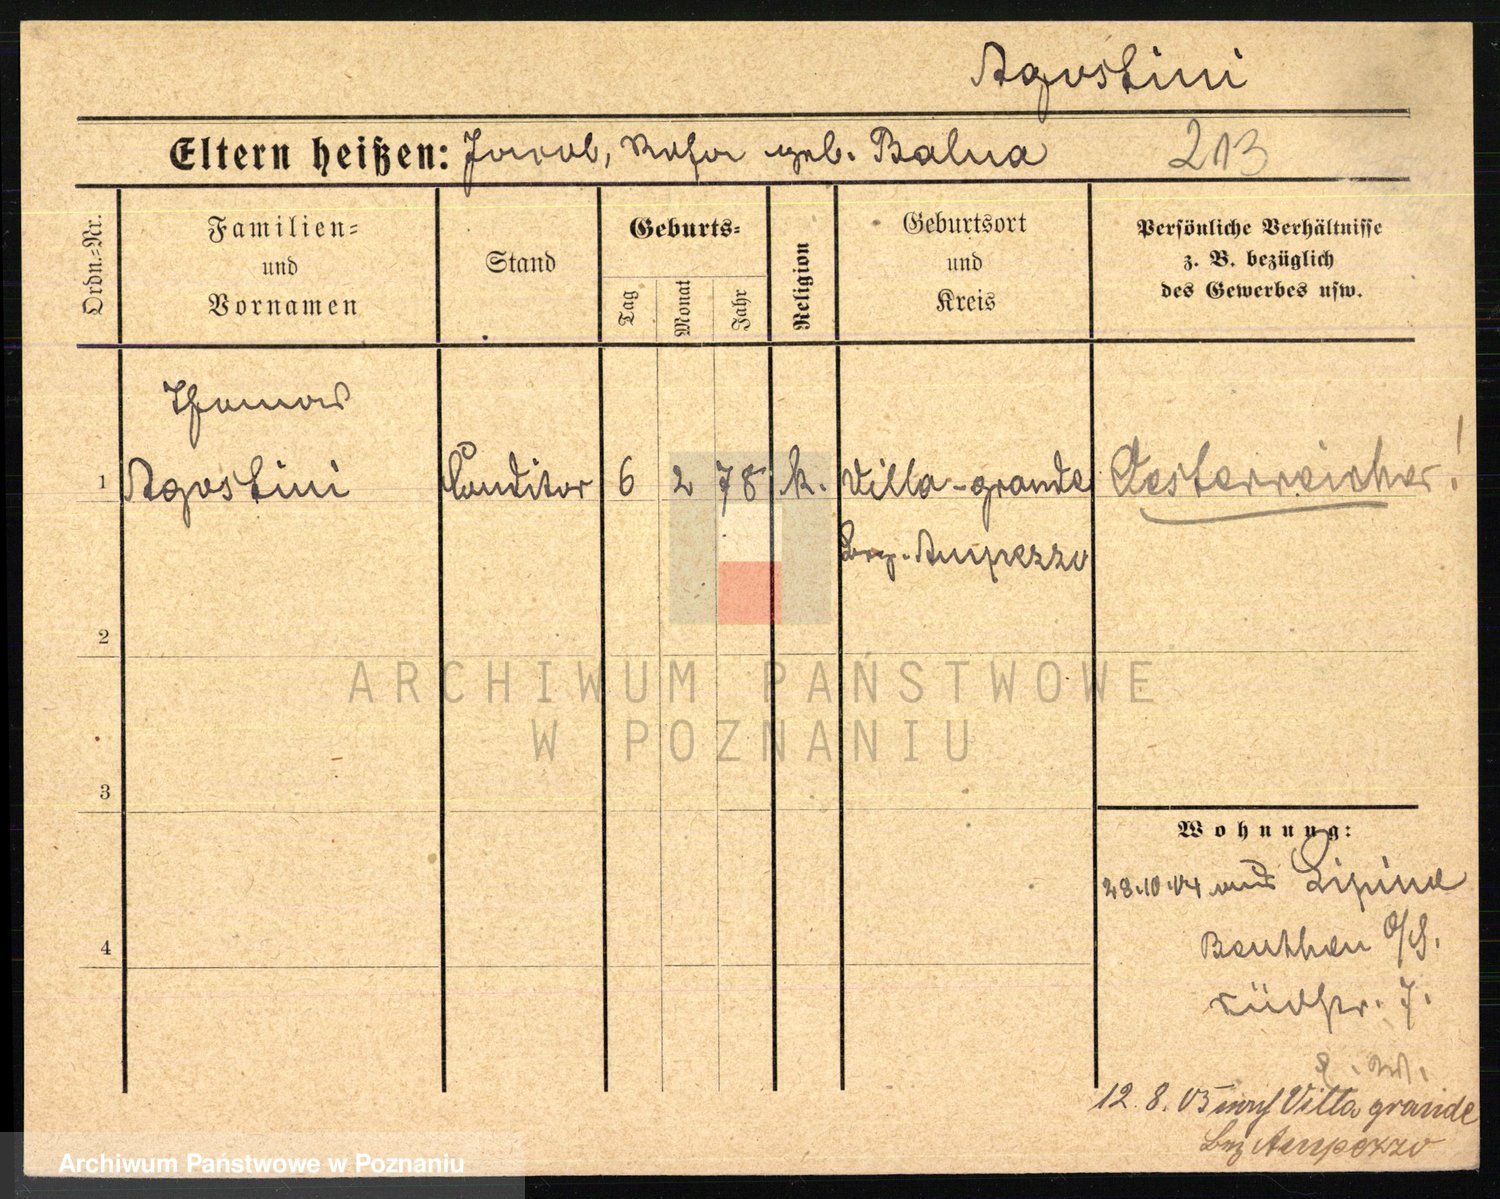 Agostini
Eltern heißen: Jacob, Rosa geb. Balua
213
Ordn.-Nr.
Familien-
und
Vornamen
Stand
Geburts-
Tag
Monat
Jahr
Religion
Geburtsort
und
Kreis
Persönliche Verhältnisse
z. B. bezüglich
des Gewerbes usw.
Thomas
1 Agostini Conditor 6 2 78 k. Villa-grande Oesterreicher!
Bez. Ampezzo
2
ARCHIWUM PAŃSTWOWE
W POZNANIU
3
Wohnung:
28.10.04 aus Lipine
4
Beuthen O/S.
Südstr. 7.
12. 8. 05 nach Villa grande
Bez Ampezzo
Archiwum Państwowe w Poznaniu